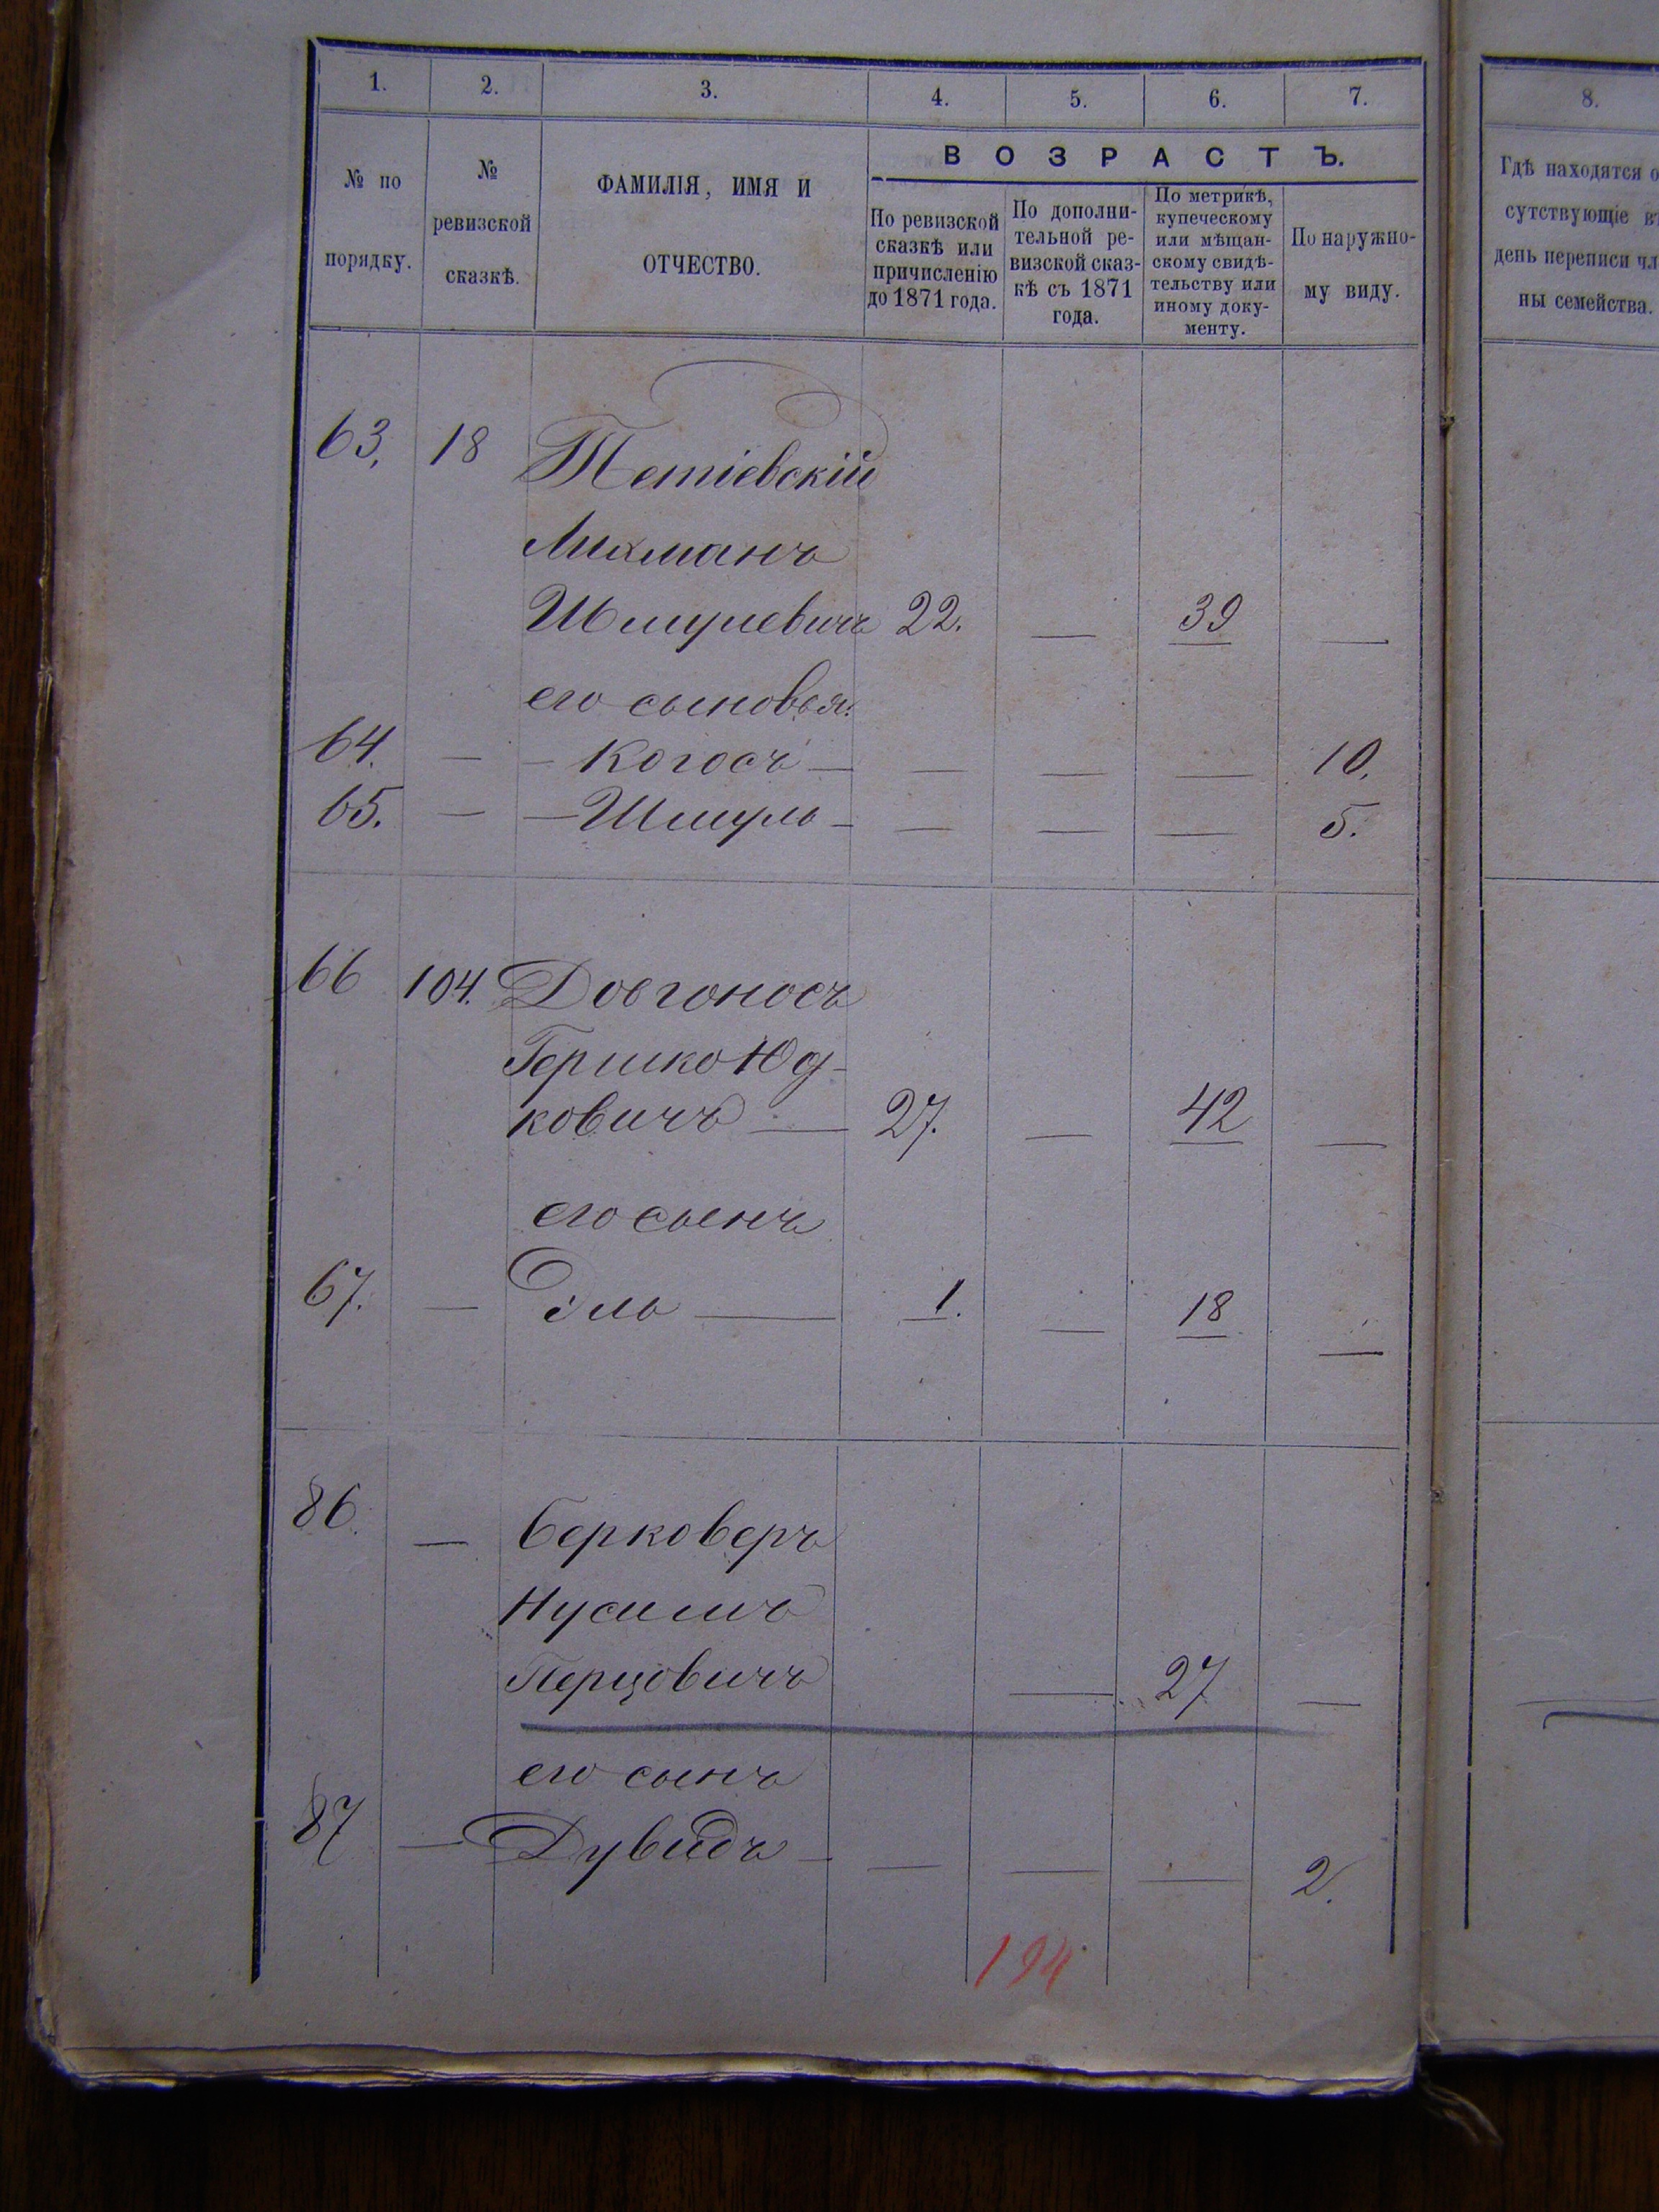 1. 2. 3. 4. 5. 6. 7. 8.
№ по порядку.
№ ревизской сказкѣ.
ФАМИЛІЯ, ИМЯ И ОТЧЕСТВО.
ВОЗРАСТЪ.
По ревизской сказкѣ или причисленію до 1871 года.
По дополни-тельной ре-визской сказ-кѣ съ 1871 года.
По метрикѣ, купеческому или мѣщан-скому свидѣ-тельству или иному доку-менту.
По наружно-му виду.
Гдѣ находятся о
сутствующіе въ
день переписи чл
ны семейства.
63. 18 Тетіевскій
Лихманъ
Шмулевичъ 22. — 39 —
его сыновья:
64. — — Когосъ — — — — 10.
65. — — Шмуль — — — — 5.
66 104. Довгоносъ
Гершко Юд-
ковичъ — 27. — 42 —
его сынъ
67. — Эль — 1. — 18 —
86. — Берковеръ
Нусимъ
Перцовичъ — 27 —
его сынъ
87 — Дувидъ — — — — 2.
194